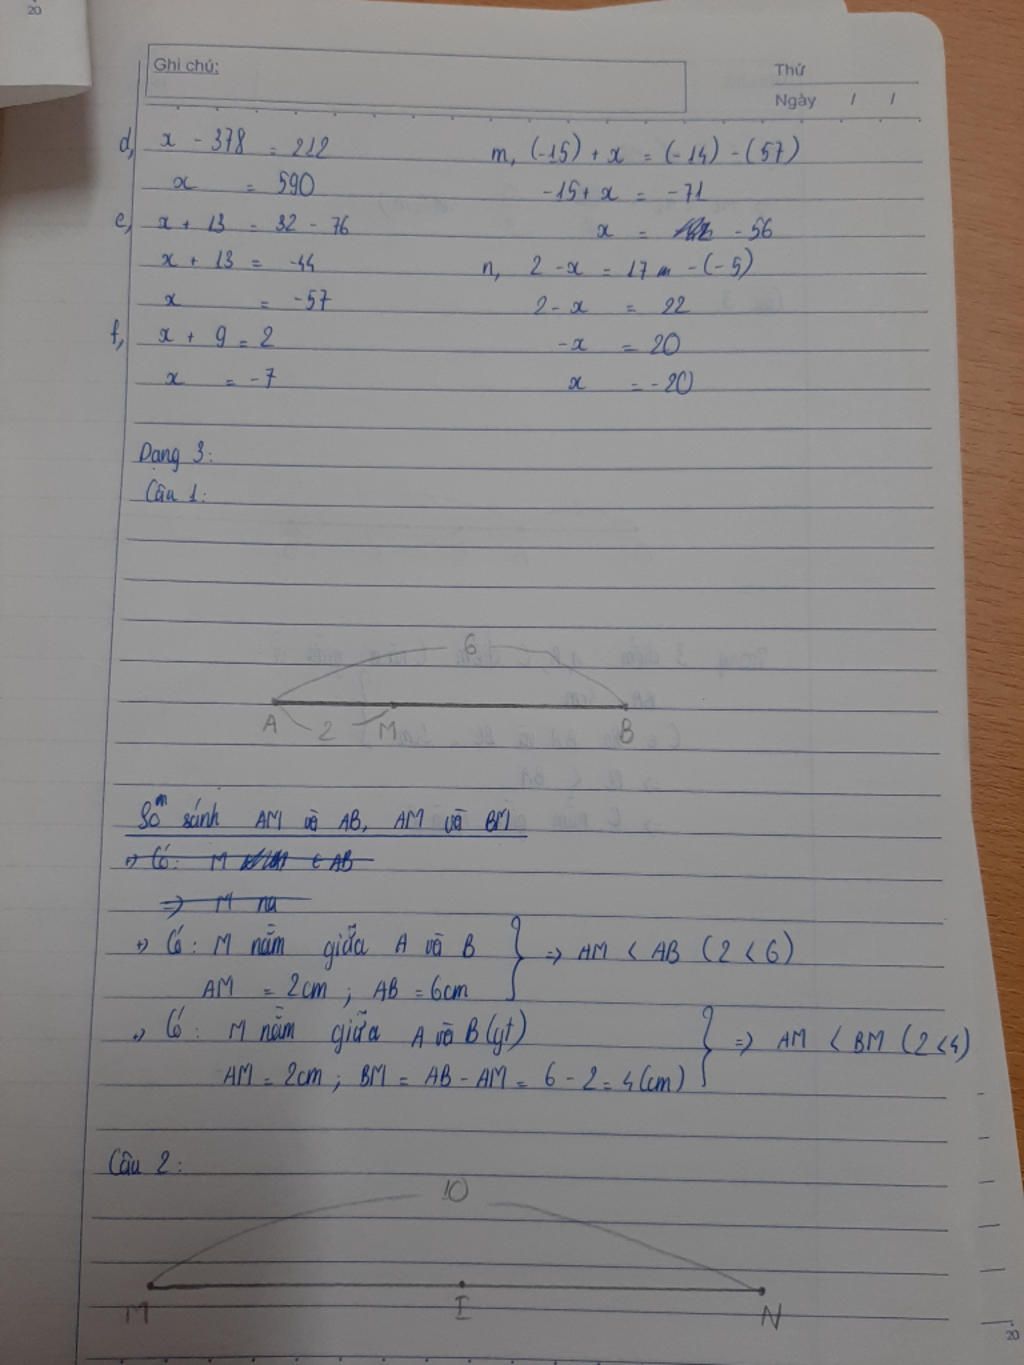 20
Ghi chú:
Thứ
Ngày / /
d, x - 378 = 212
x = 590
e, x + 13 = 32 - 76
x + 13 = -44
x = -57
f, x + 9 = 2
x = -7
m, (-15) + x = (-14) - (57)
-15 + x = -71
x = -56
n, 2 - x = 17 - (-5)
2 - x = 22
-x = 20
x = -20
Dạng 3:
Câu 1:
6
A 2 M B
So sánh AM và AB, AM và BM
+) Có: M ∈ AB
=> M nằ
+) Có: M nằm giữa A và B
AM = 2cm ; AB = 6cm } => AM < AB (2 < 6)
+) Có: M nằm giữa A và B (gt)
AM = 2cm ; BM = AB - AM = 6 - 2 = 4 (cm) } => AM < BM (2 < 4)
Câu 2:
10
M I N
20